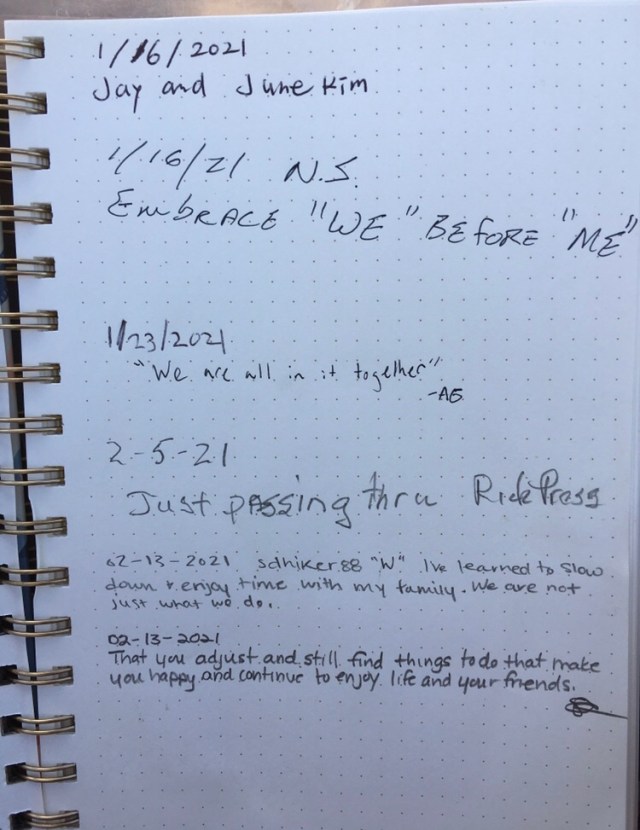 1/16/2021
Jay and June Kim
1/16/21 N.S.
EmbRACE "WE" BEFORE "ME"
1/23/2021
"We are all in it together"
-AE
2-5-21
Just pASSing thru Rick Press
02-13-2021 sdhiker88 "W" I've learned to slow
down & enjoy time with my family. We are not
just what we do.
02-13-2021
That you adjust and still find things to do that make
you happy and continue to enjoy life and your friends.